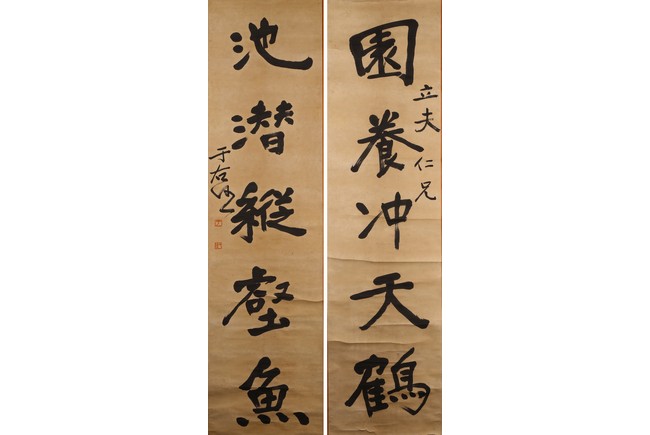 園養冲天鶴
立夫仁兄
池潜縱壑魚
于右任